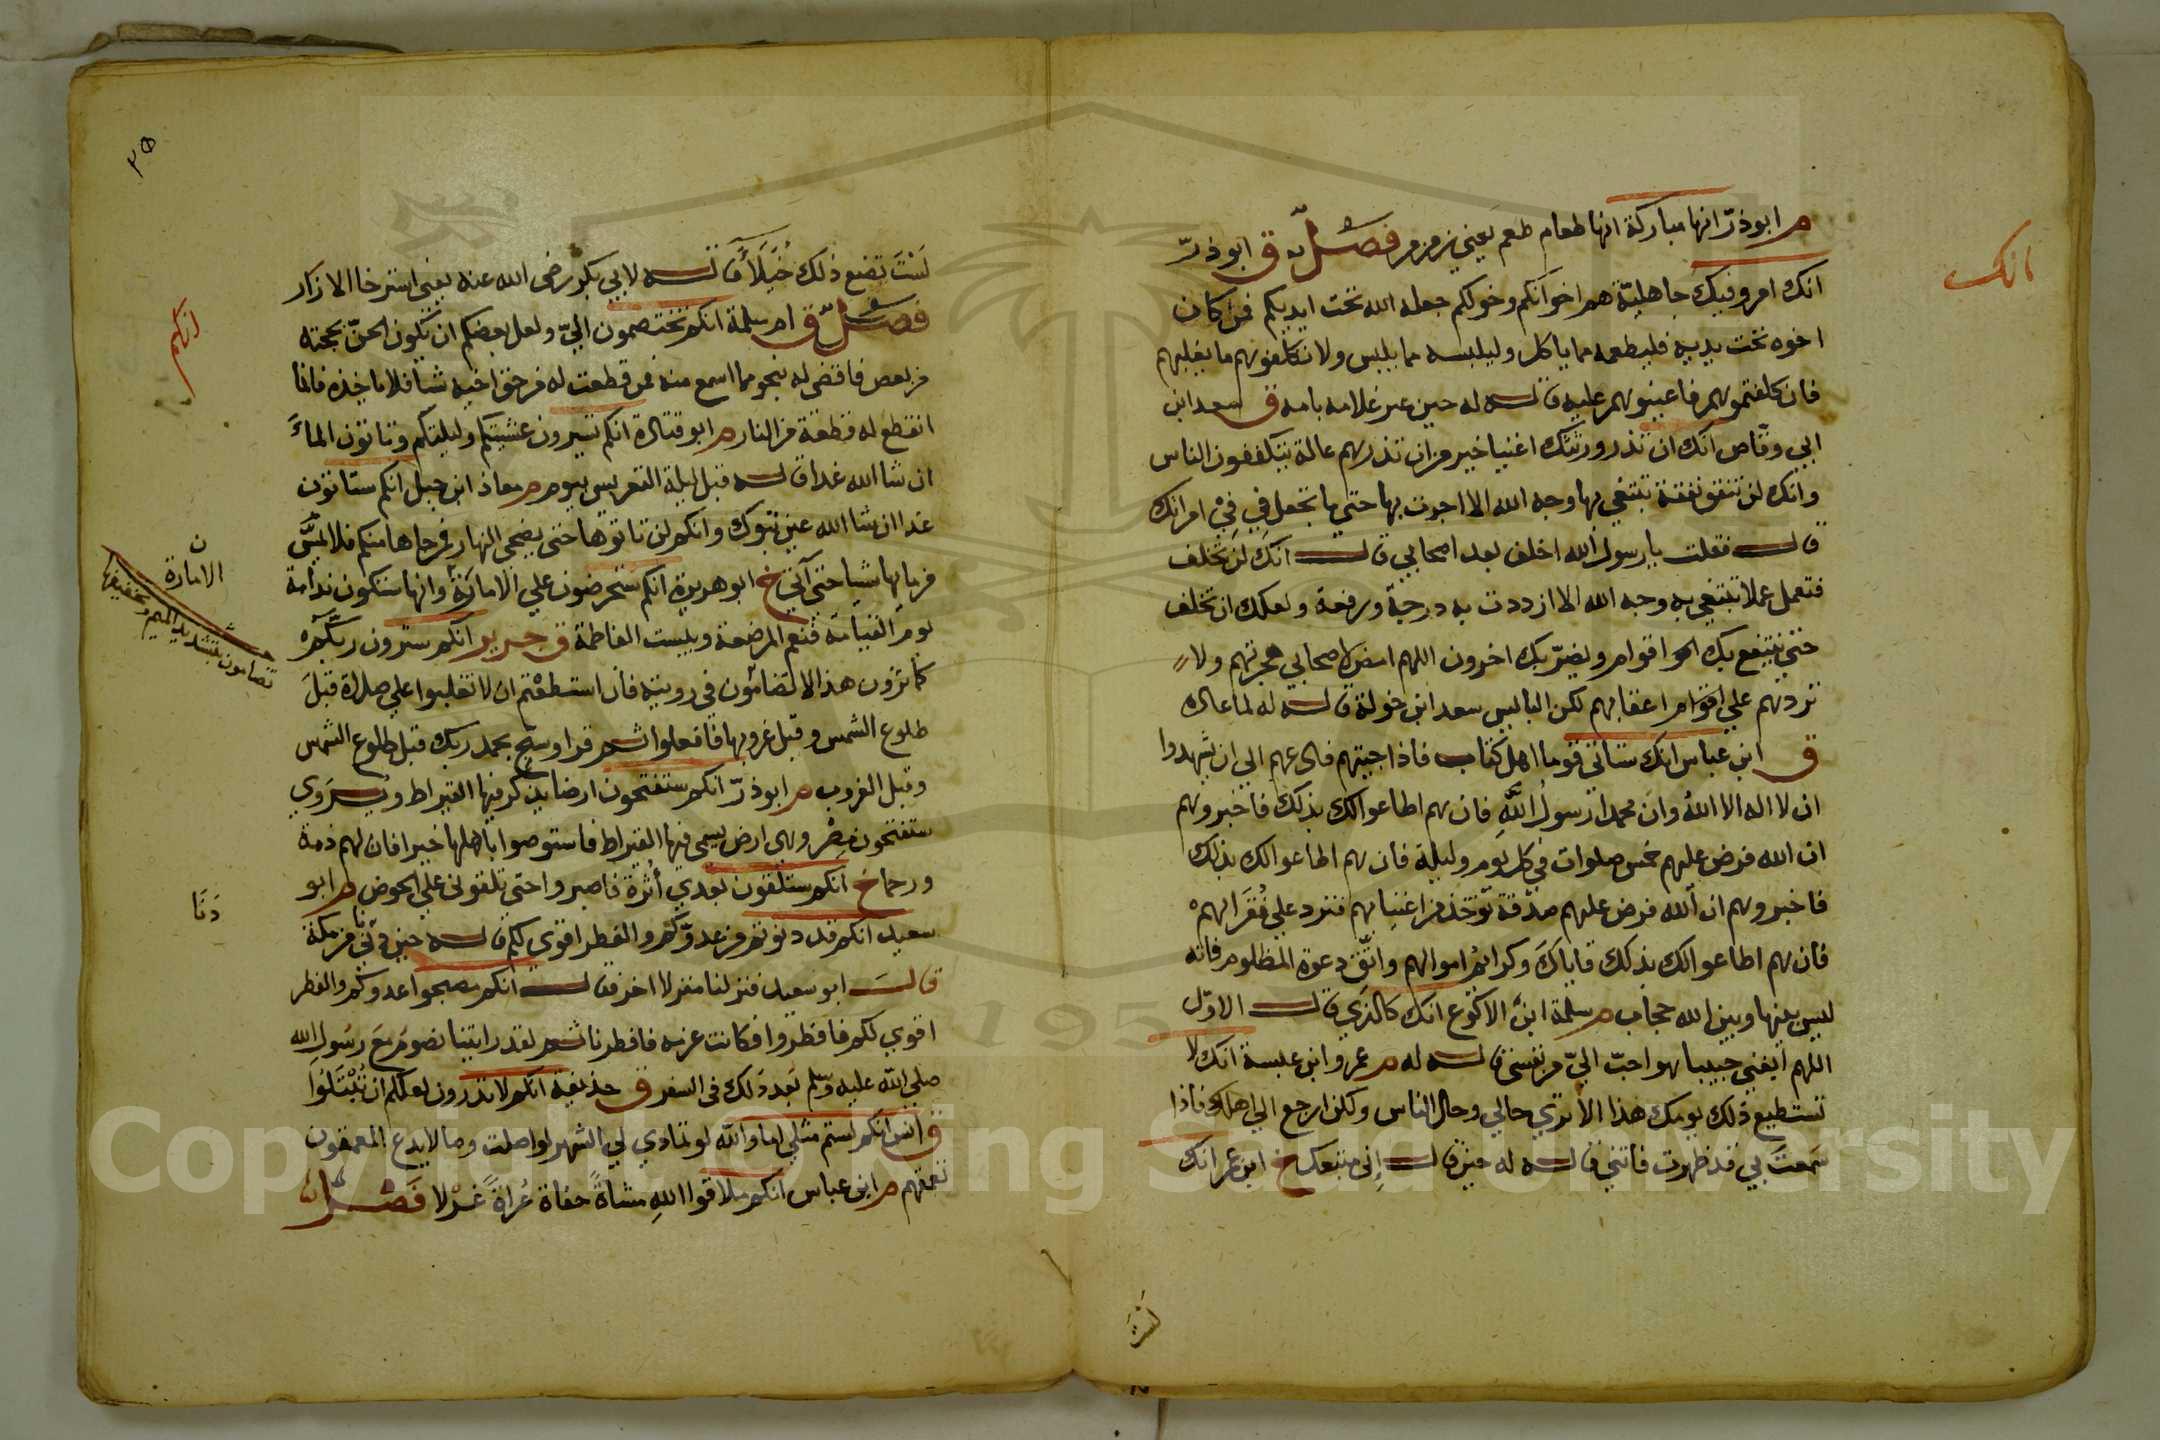 م ابو ذرّ انها مباركة انها طعام طعم يعني زمزم فصل ق ابو ذرّ
انك امرو فيك جاهلية هم اخوانكم وخولكم جعله الله تحت ايديكم فمن كان
اخوه تحت يديه فليطعمه مما ياكل وليلبسه مما يلبس ولا تكلفوهم ما يغلبهم
فان كلفتموهم فاعينوهم عليه قالـــه له حين عير غلامه بامه ق سعد ابن
ابي وقّاص انك ان تذر ورثتك اغنيا خير من ان تذرهم عالة يتكففون الناس
وانك لن تنفق نفقة تبتغي بها وجه الله الا اجرت بها حتي ما تجعل في فيْ امراتك
قال فقلت يا رسول الله اخلف بعد اصحابي قال انك لن تخلف
فتعمل عملا تبتغي به وجه الله الا ازددت به درجة ورفعة ولعلك ان تخلف
حتي ينتفع بك اقوام ويضرّ بك اخرون اللهم امض لاصحابي هجرتهم ولا
تردهم علي اعقابهم لكن البايس سعد ابن خولة قاله له لما عاده
ق ابن عباس انك ستاتي قوما اهل كتاب فاذا جيتهم فادعهم الي ان يشهدوا
ان لا اله الا اللهُ وان محمدا رسولُ اللَّهِ فان هم اطاعوا لك بذلك فاخبرهم
ان الله فرض عليهم خمس صلوات في كل يوم وليلة فان هم اطاعوا لك بذلك
فاخبرهم ان الله فرض عليهم صدقة تؤخذ من اغنيائهم فترد علي فُقَرائهم
فان هم اطاعوا لك بذلك فاياكَ وكرائم اموالهم واتّق دعوة المظلوم فانه
ليس بينها وبين الله حجاب م سلمة ابن الاكوع انك كالذي قال الاوّل
اللهم ابغني حبيبا هو احبّ اليّ من نفسي قاله له م عمرو ابن عبسة انك لا
تستطيع ذلك يومك هذا الا تري حالي وحال الناس ولكن ارجع الي اهلك فاذا
سمعتَ بي قد ظهرت فاتني قاله له حين قال إني متبعك خ ابن عمر انك
لستَ
انك
٢٥
لَسْتَ تصنع ذلك خُيَلَاءً قاله لابي بكر رضي الله عنه يعني استرخا الازار
فصل ق ام سلمة انكم تختصمون اليّ ولعل بعضكم ان يكون الحنَ بحجته
من بعض فاقضي له بنحو مما اسمع منه فمن قطعت له من حق اخيه شيا فلا ياخذه فانما
اقطع له قطعة من النار م ابو قتادة انكم تسيرون عشيتكم وليلتكم وتاتون الماءَ
ان شا الله غدا قاله قبل ليلة التعريس بيوم م معاذ ابن جبل انكم ستاتون
غدا ان شا الله عين تبوك وانكم لن تاتوها حتي يضحي النهار فمن جاها منكم فلا يَمَسَّ
من مايها شيا حتي آتي خ ابو هريرة انكم ستحرصون علي الامارَة وانها ستكون ندامة
يوم القيامة فنعم المرضعة وبيست الفاطمة ق جرير انكم سترون ربّكم
كما ترون هذا لا تضامّون في رويته فان استطعتم ان لا تغلبوا علي صلاة قبل
طلوع الشمس وقبل غروبها فافعلوا ثم قرا وسبح بحمد ربك قبل طلوع الشمس
وقبل الغروب م ابو ذرّ انكم ستفتحون ارضا يذكر فيها القيراط ويروي
ستفتحون مِصْر وهي ارض يسمي فيها القيراط فاستوصوا باهلها خيرا فان لهم ذمة
ورحما خ انكم ستلقون بعدي أثرة فاصبروا حتي تلقوني علي الحوض م ابو
سعيد انكم قد دنوتم من عدوّكم والفطر اقوي لكم قاله حين دنا من مكة
قال ابو سعيد فنزلنا منزلا اخر فقال انكم مصبحوا عدوكم والفطر
اقوي لكم فافطروا فكانت عزمه فافطرنا ثم لقد رايتنا نصوم مَعَ رَسولِ الله
صلي اللّه عليه وسلم بَعد ذلك في السفر ق حذيفة انكم لا تدرون لعلكم ان تُبْتَلُوا
ق انس انكم لستم مثلي اما واللّه لو تمادي لي الشهر لواصلت وصالا يدع المتعمقون
تعمقهم م ابن عباس انكم ملاقوا اللهِ مشاةً حفاة عُراةً غُرْلا فَصْل
انكم
ن
الامارة
تضامون بتشديد الميم وتخفيفها
دَنَا